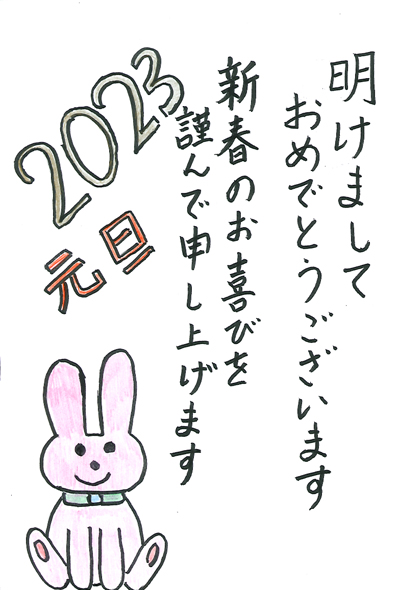 明けまして
おめでとうございます
新春のお喜びを
謹んで申し上げます
2023
元旦